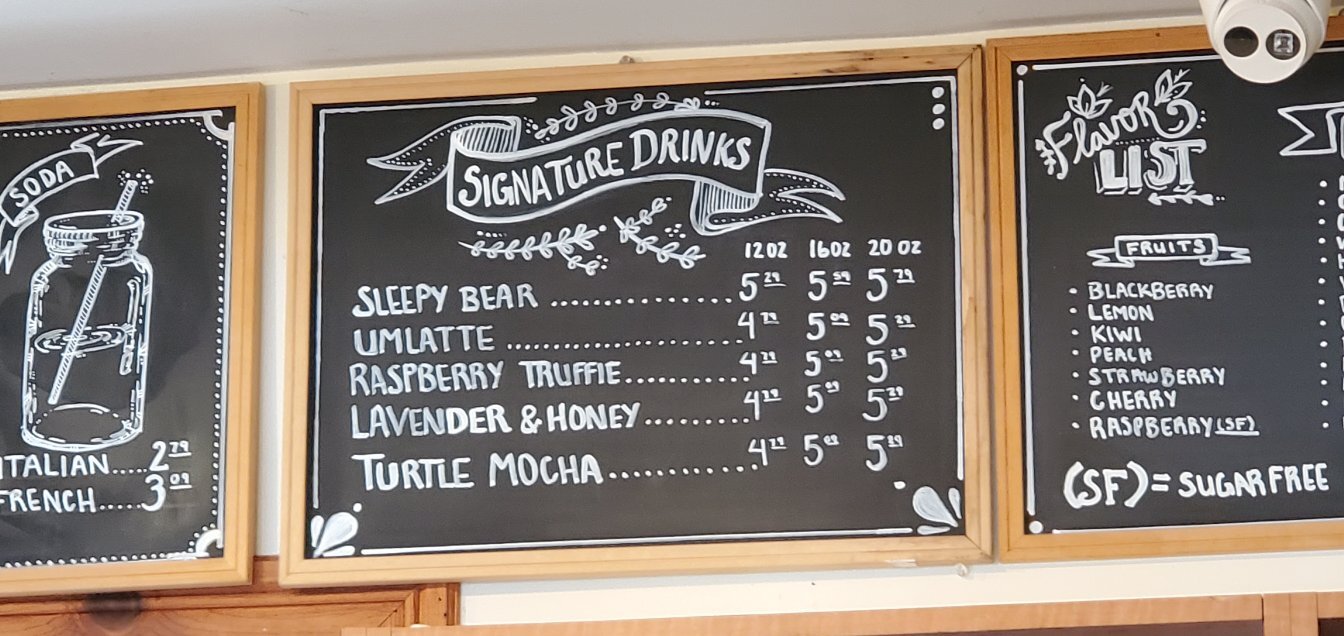 SODA
ITALIAN.....2 79
FRENCH.....3 09
SIGNATURE DRINKS
12 OZ 16 OZ 20 OZ
SLEEPY BEAR ............... 5 29 5 59 5 79
UMLATTE .................... 4 79 5 09 5 29
RASPBERRY TRUFFIE........... 4 79 5 09 5 29
LAVENDER & HONEY......... 4 79 5 09 5 29
TURTLE MOCHA............ 4 79 5 09 5 29
Flavor
LIST
FRUITS
• BLACKBERRY
• LEMON
• KIWI
• PEACH
• STRAWBERRY
• CHERRY
• RASPBERRY (SF)
(SF) = SUGAR FREE